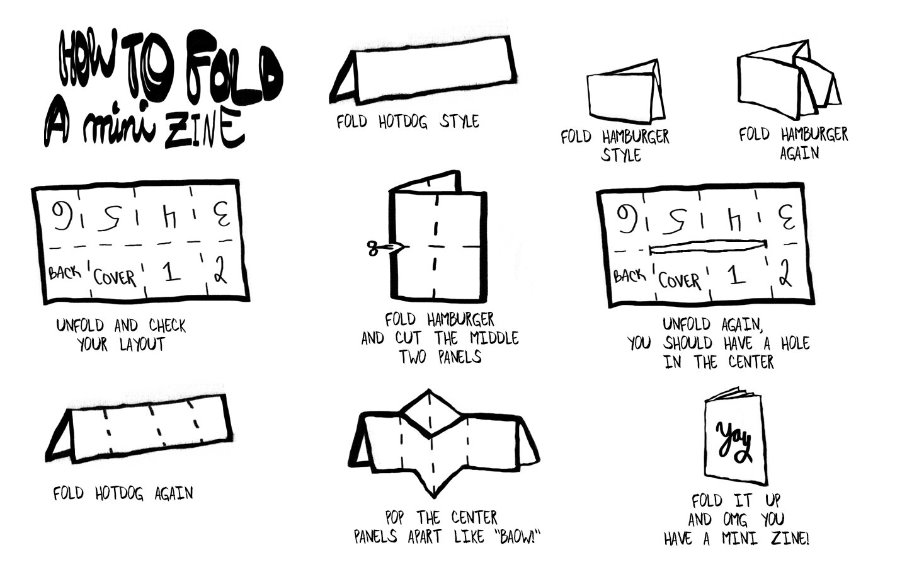 HOW TO FOLD
A mini ZINE
FOLD HOTDOG STYLE
FOLD HAMBURGER
STYLE
FOLD HAMBURGER
AGAIN
6 5 4 3
BACK COVER 1 2
UNFOLD AND CHECK
YOUR LAYOUT
FOLD HAMBURGER
AND CUT THE MIDDLE
TWO PANELS
6 5 4 3
BACK COVER 1 2
UNFOLD AGAIN,
YOU SHOULD HAVE A HOLE
IN THE CENTER
FOLD HOTDOG AGAIN
POP THE CENTER
PANELS APART LIKE "BAOW!"
Yay
FOLD IT UP
AND OMG YOU
HAVE A MINI ZINE!